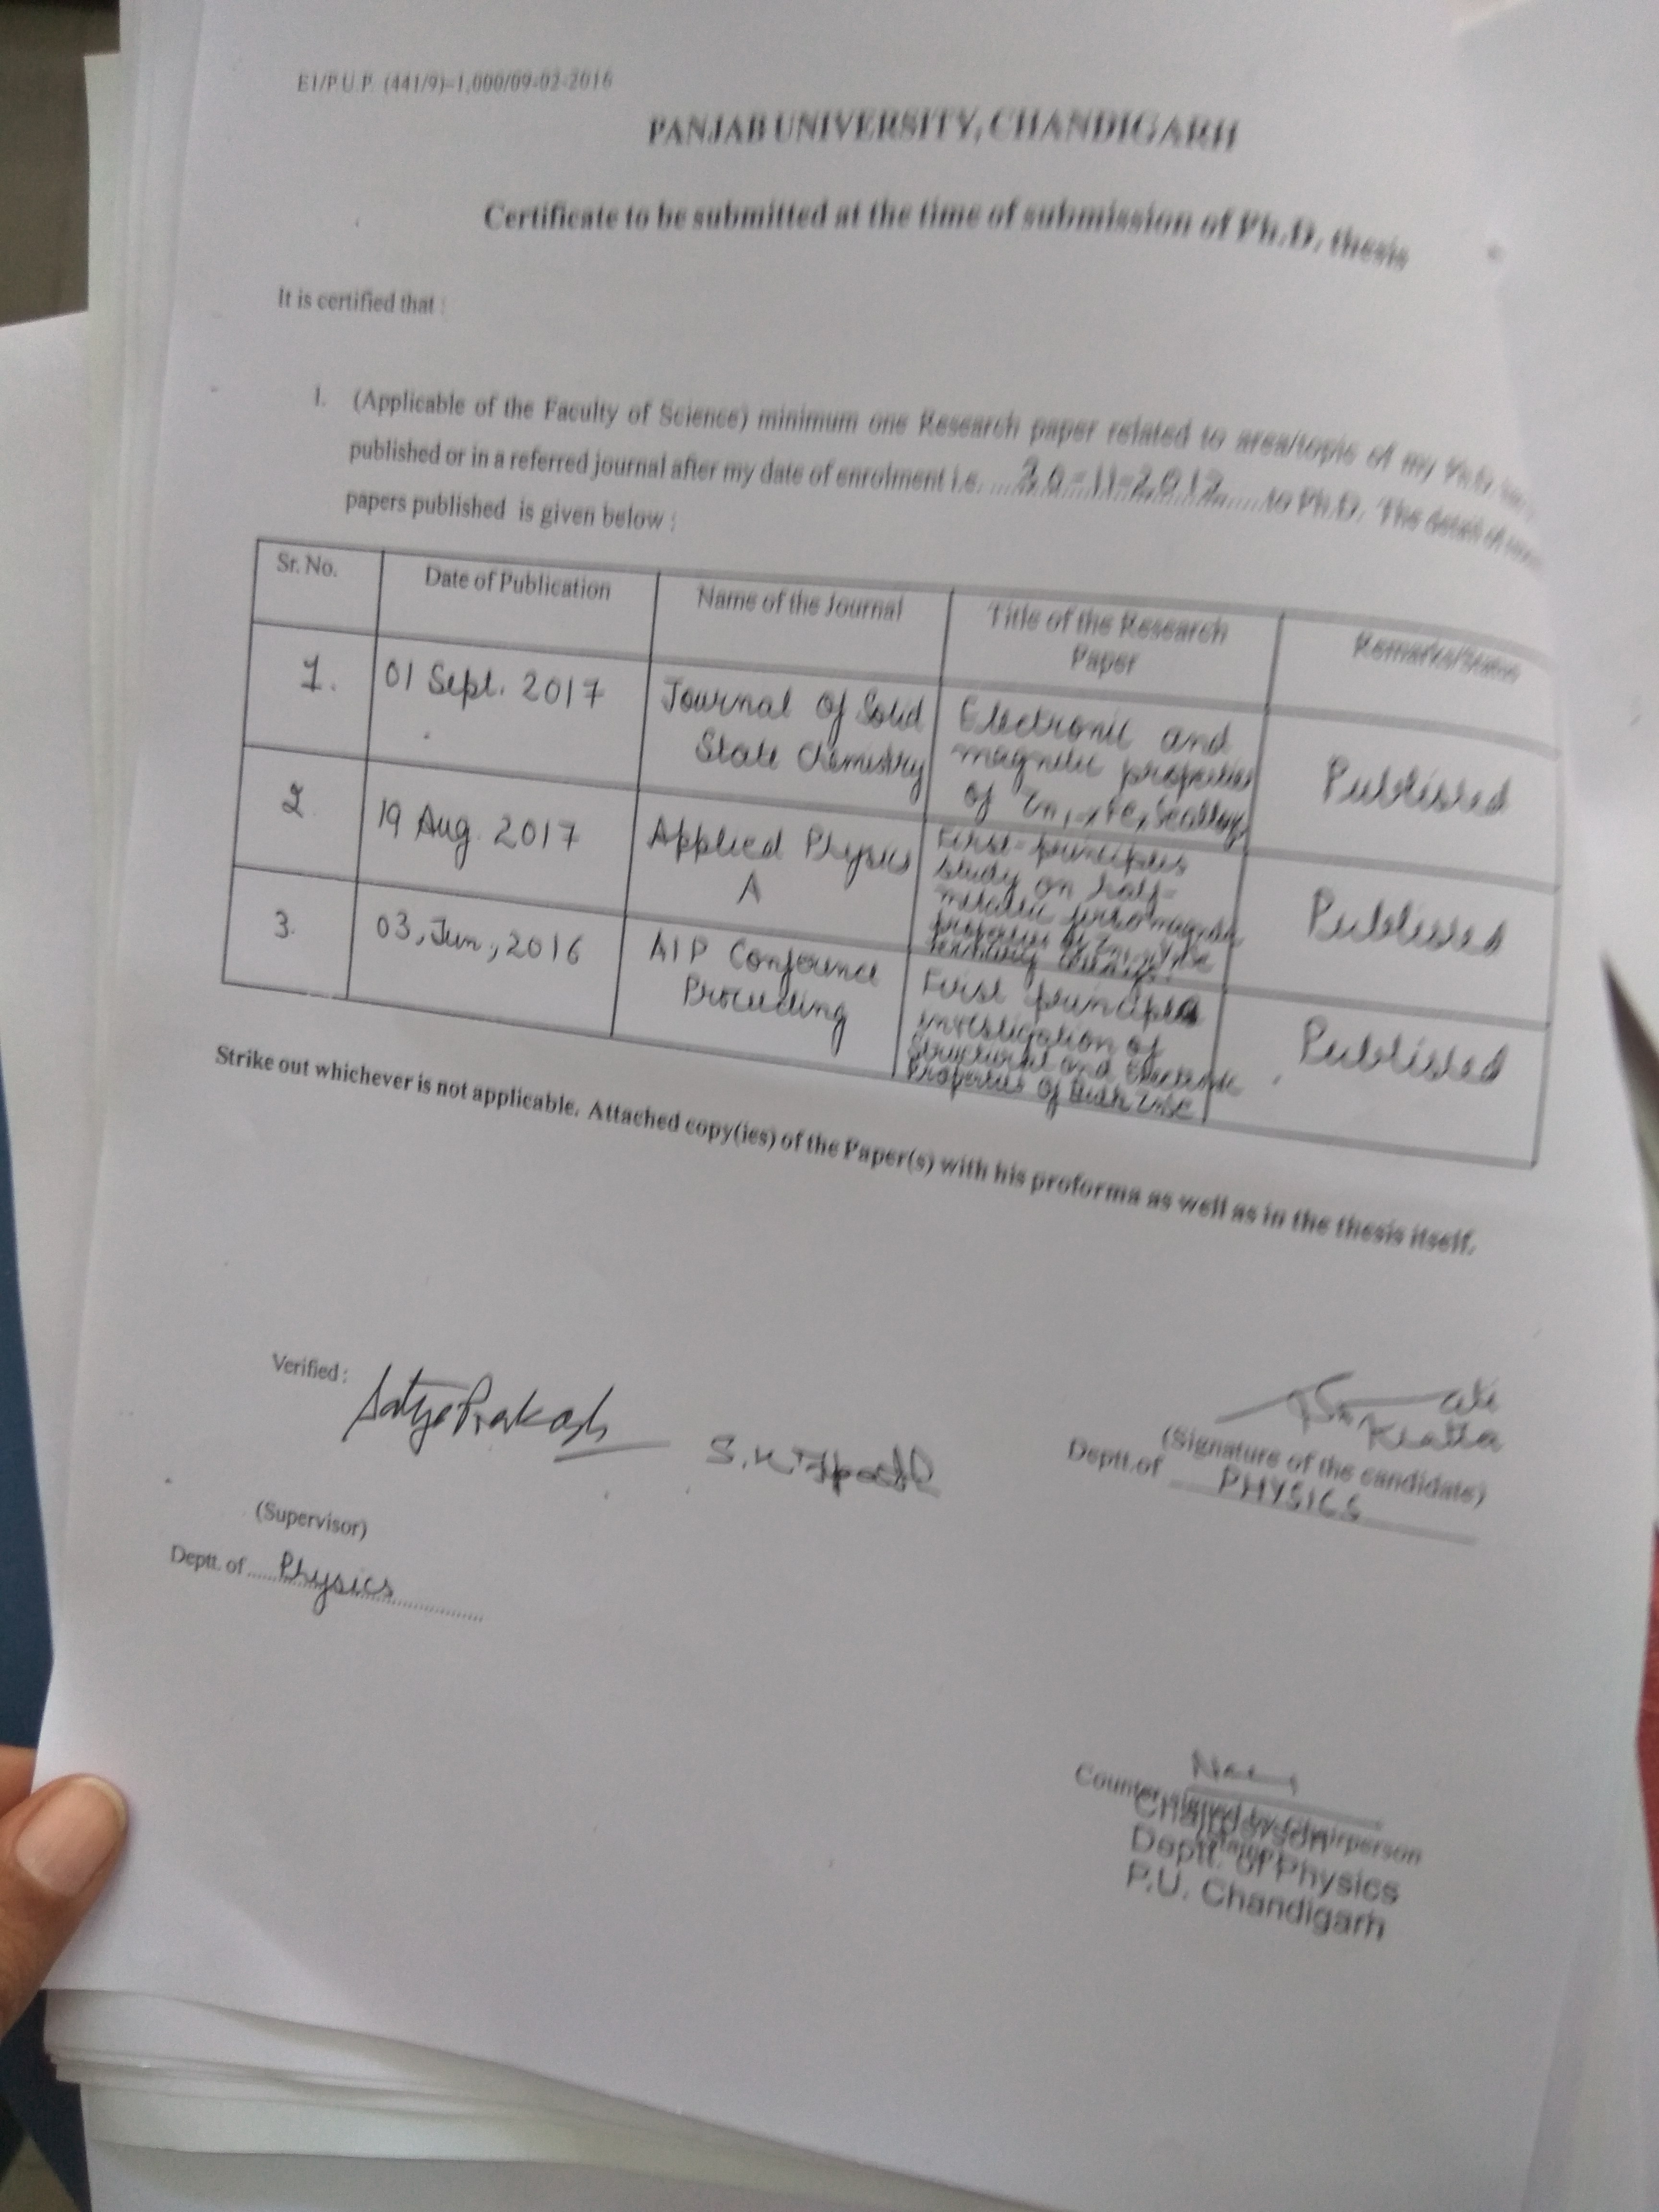 E1/P.U.P. (441/9)–1,000/09-02-2016
PANJAB UNIVERSITY, CHANDIGARH
Certificate to be submitted at the time of submission of Ph.D. thesis
It is certified that :
1. (Applicable of the Faculty of Science) minimum one Research paper related to area/topic of my Ph.D
published or in a referred journal after my date of enrolment i.e. to Ph.D. The detail of
papers published is given below :
Sr. No. Date of Publication Name of the Journal Title of the Research Paper Remarks/Status
1. 01 Sept. 2017 Journal of Solid State Chemistry Electronic and magnetic properties of Zn1-xFexSe alloys Published
2. 19 Aug. 2017 Applied Physics A First-principles study on half-metallic ferromagnetic properties of Published
3. 03, Jun., 2016 AIP Conference Proceeding First principles investigation of Structural and Electronic Properties of Bulk ZnSe Published
Strike out whichever is not applicable. Attached copy(ies) of the Paper(s) with his proforma as well as in the thesis itself.
Verified :
Satya Prakash
(Signature of the candidate)
Deptt. of PHYSICS
(Supervisor)
Deptt. of Physics
Counter signed by Chairperson
Chairperson
Deptt. of Physics
P.U. Chandigarh